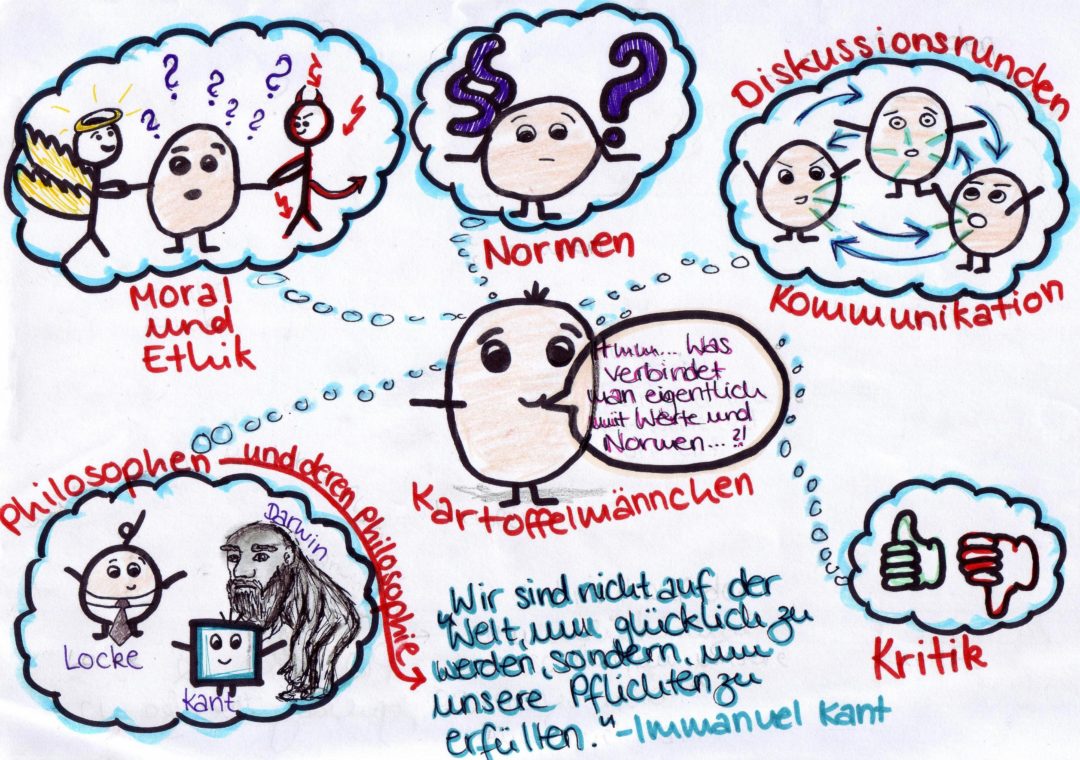 Moral
und
Ethik
§ ?
Normen
Diskussionsrunden
Kommunikation
? ? ? ? ? ?
Hmm... was
verbindet
man eigentlich
mit Werte und
Normen...?!
Kartoffelmännchen
Philosophen und deren Philosophie
Darwin
Locke
Kant
„Wir sind nicht auf der
Welt, um glücklich zu
werden, sondern, um
unsere Pflichten zu
erfüllten.“ -Immanuel Kant
Kritik